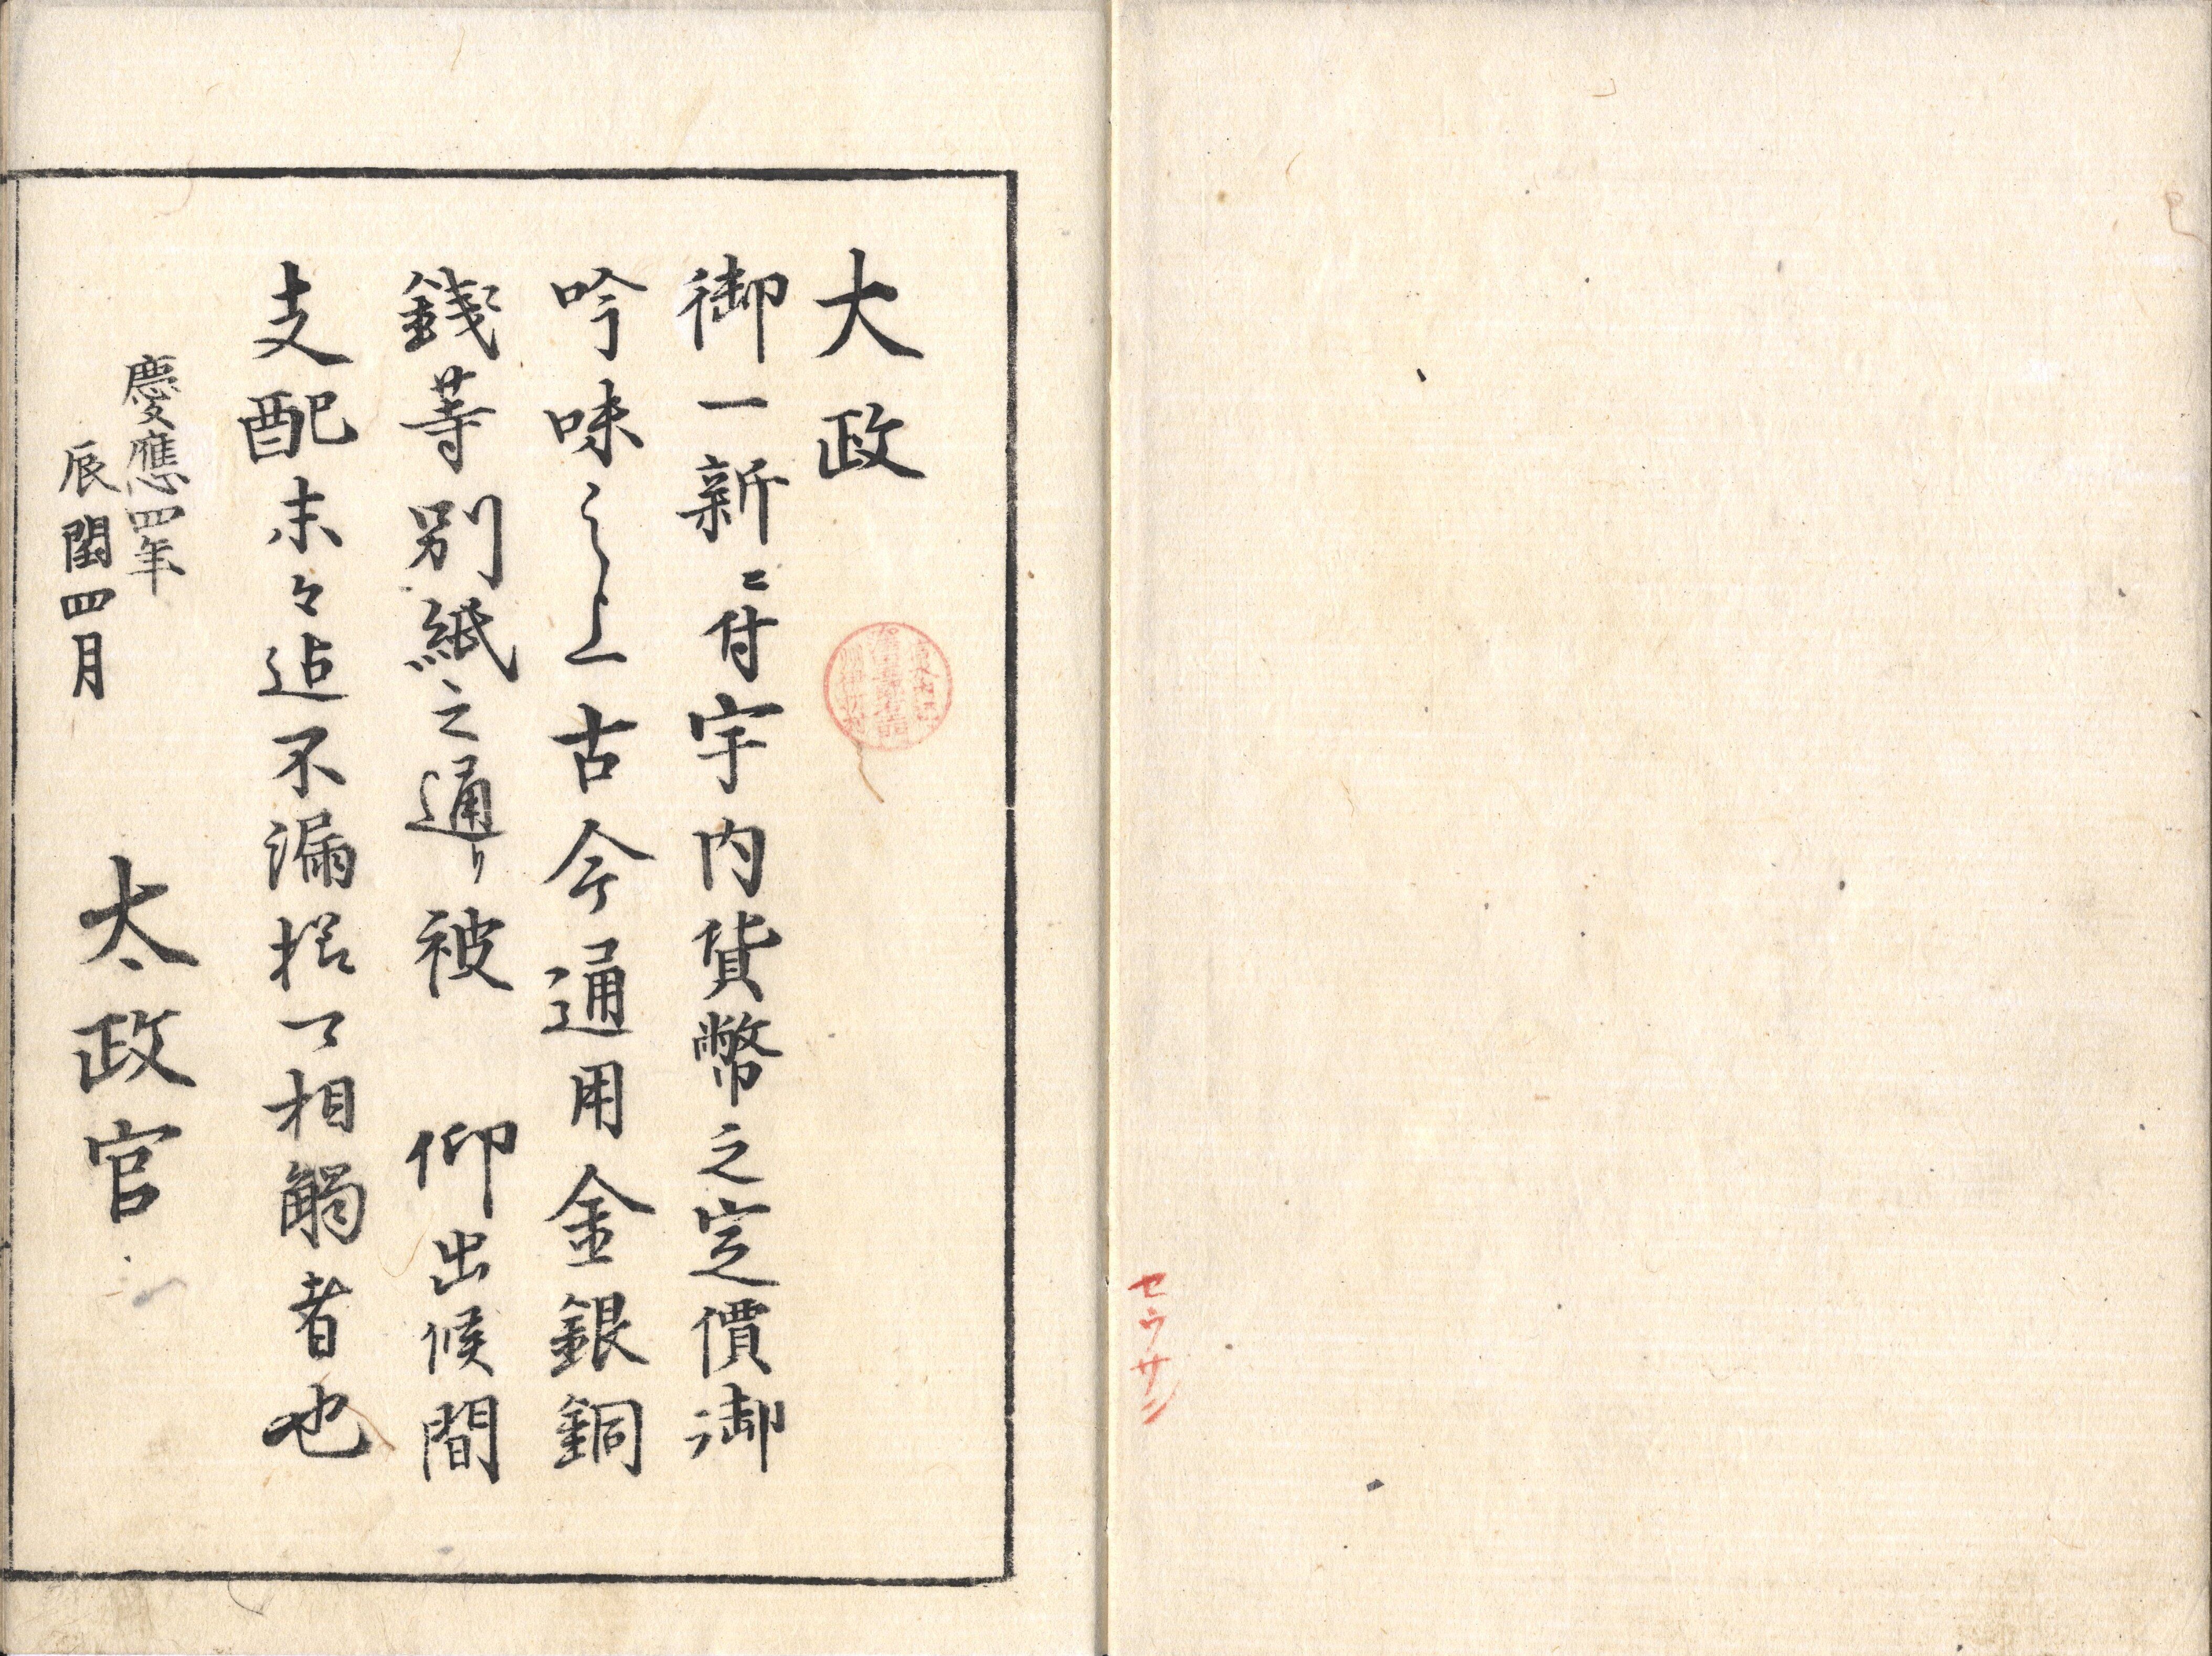 セウサン
大政
御一新ニ付宇内貨幣之定價御
吟味之上古今通用金銀銅
錢等別紙之通り被　仰出候間
支配末々迠不漏樣可相觸者也
慶應四年
辰閏四月
太政官